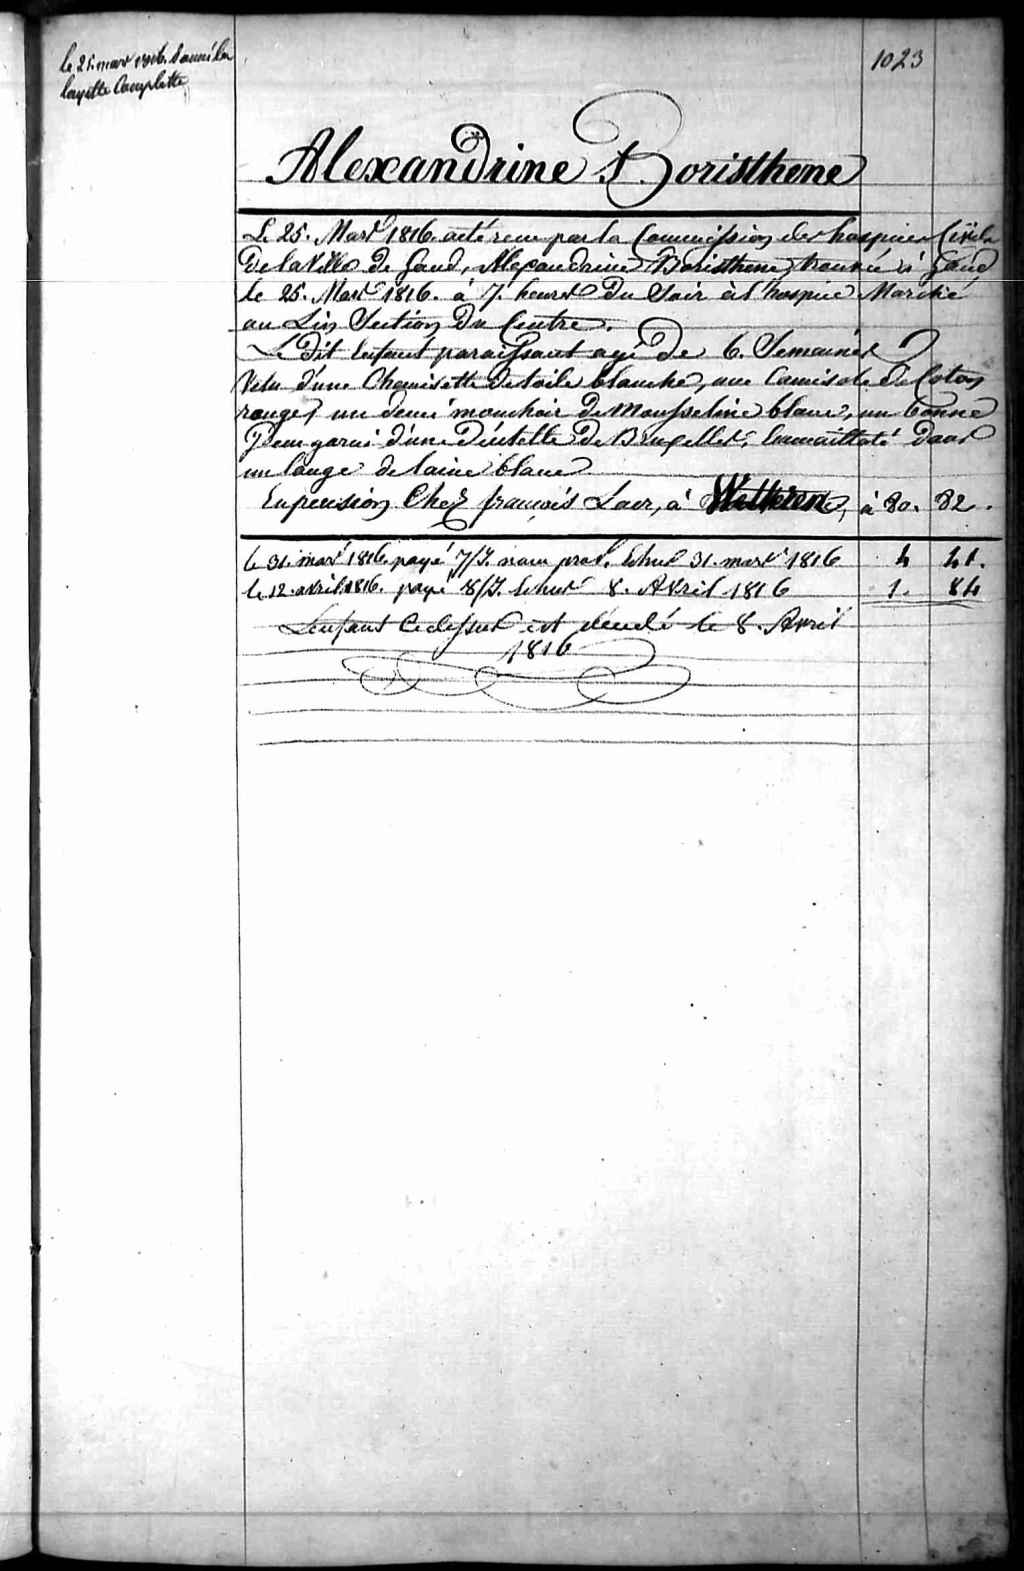 le 25. mars 1816. donné la
layette Complette
1023
Alexandrine Boristhene
Le 25. Mars 1816. acté reçu par la Commission des hospices Civils
De la Ville de Gand, Alexandrine Boristhene, trouvée à Gand
le 25. Mars 1816. à 7. heures Du Soir à l'hospice Marché
au Lin Section Du Centre.
Le Dit Enfant paraissant agé De 6. Semaines
Vetu d'une Chemisette de toile blanche, une Camisole De Coton
rouge, un demi mouchoir De Mousseline blanc, un bonne
garni d'une Dentelle De Bruxelles, Emmailloté Dans
un lange de laine blanc
En pension Chez françois Laer, à Wetteren, à 80. 82.
le 31. mars 1816. payé 7/J. Echus 31. mars 1816 4 41.
le 12. avril 1816. payé 8/J. Echus 8. Avril 1816 1. 84
L'enfant Cidessus est decedé le 8. Avril
1816